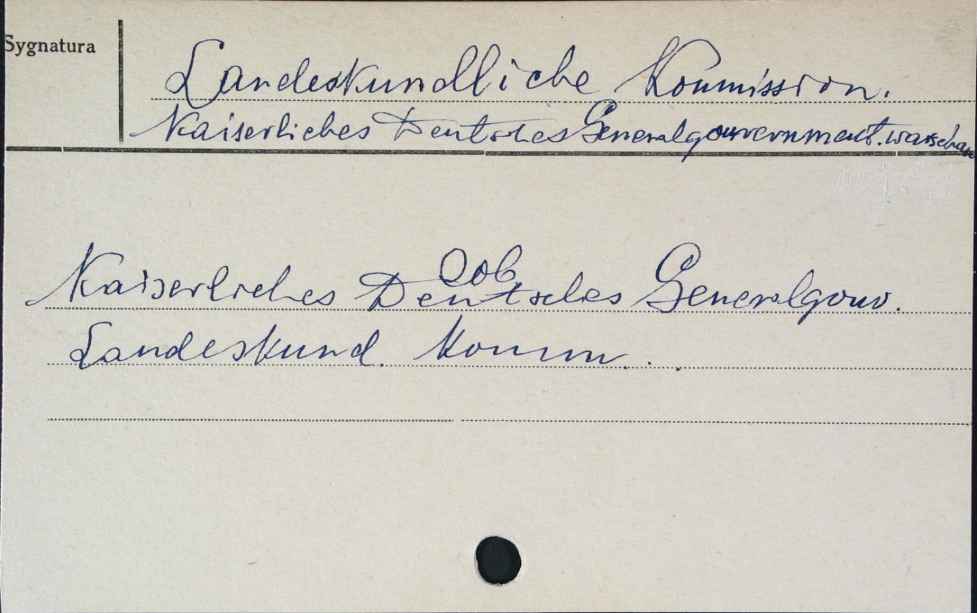 Sygnatura
Landeskundliche Kommission.
Kaiserliches Deutsches Generalgouvernment. Warschau
Zob.
Kaiserliches Deutsches Generalgouv.
Landeskund. Komm.